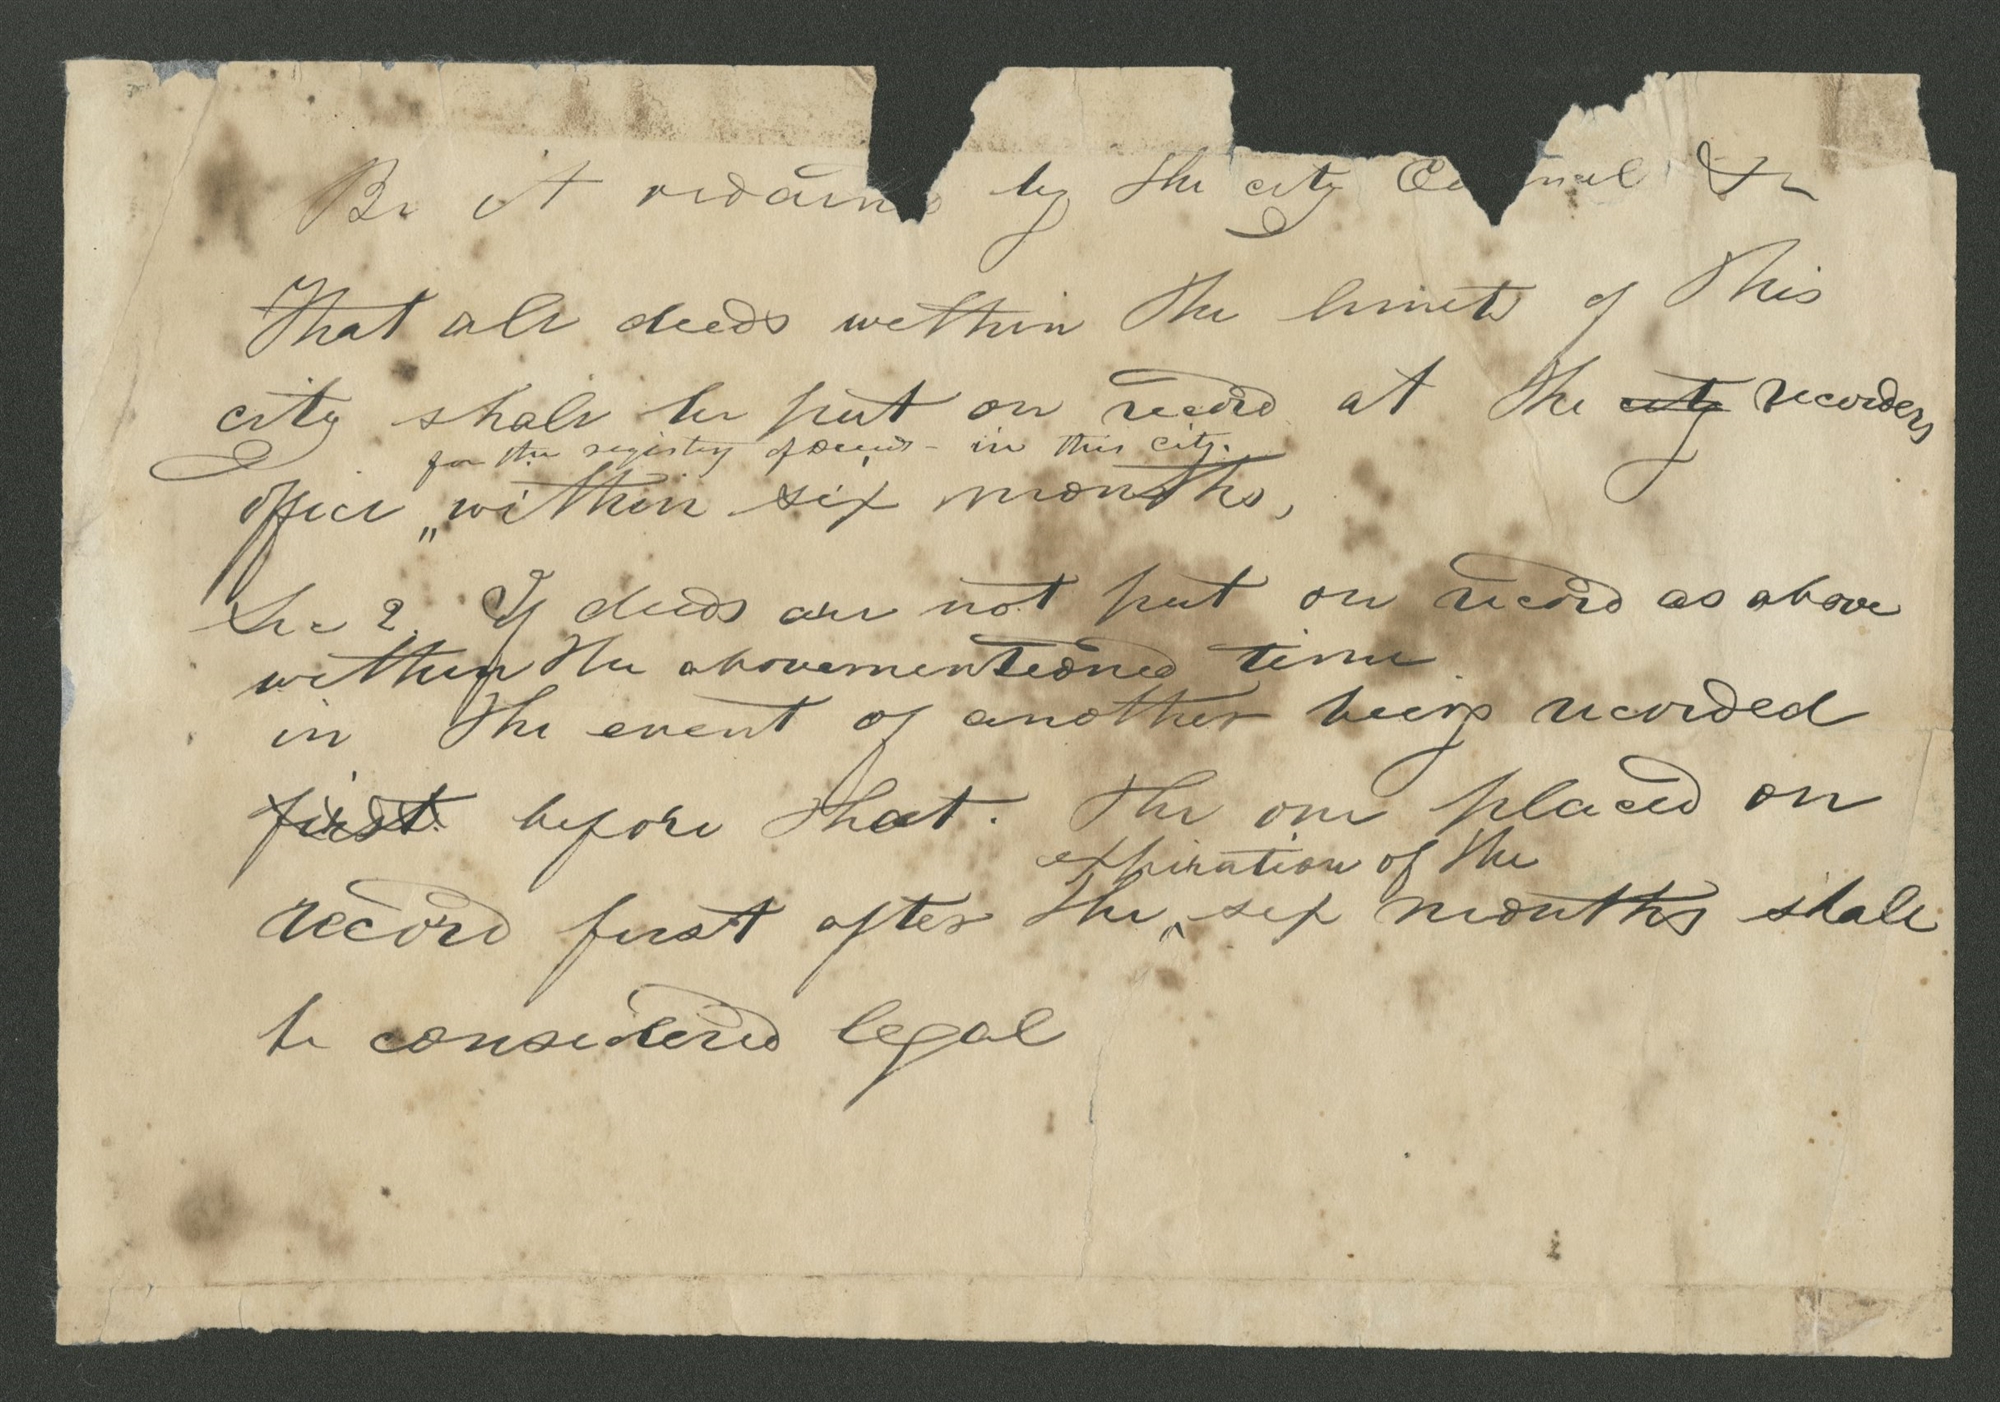 Be it ordained by the city Council &c
That all deeds within the limits of this
city shall be put on record at the city recorders
for the registry of deeds - in this city.
office " within six months,
Sec 2. If deeds are not put on record as above
within the abovementioned time
in the event of another being recorded
first before that. The one placed on
expiration of the
record first after the six months shall
be considered legal